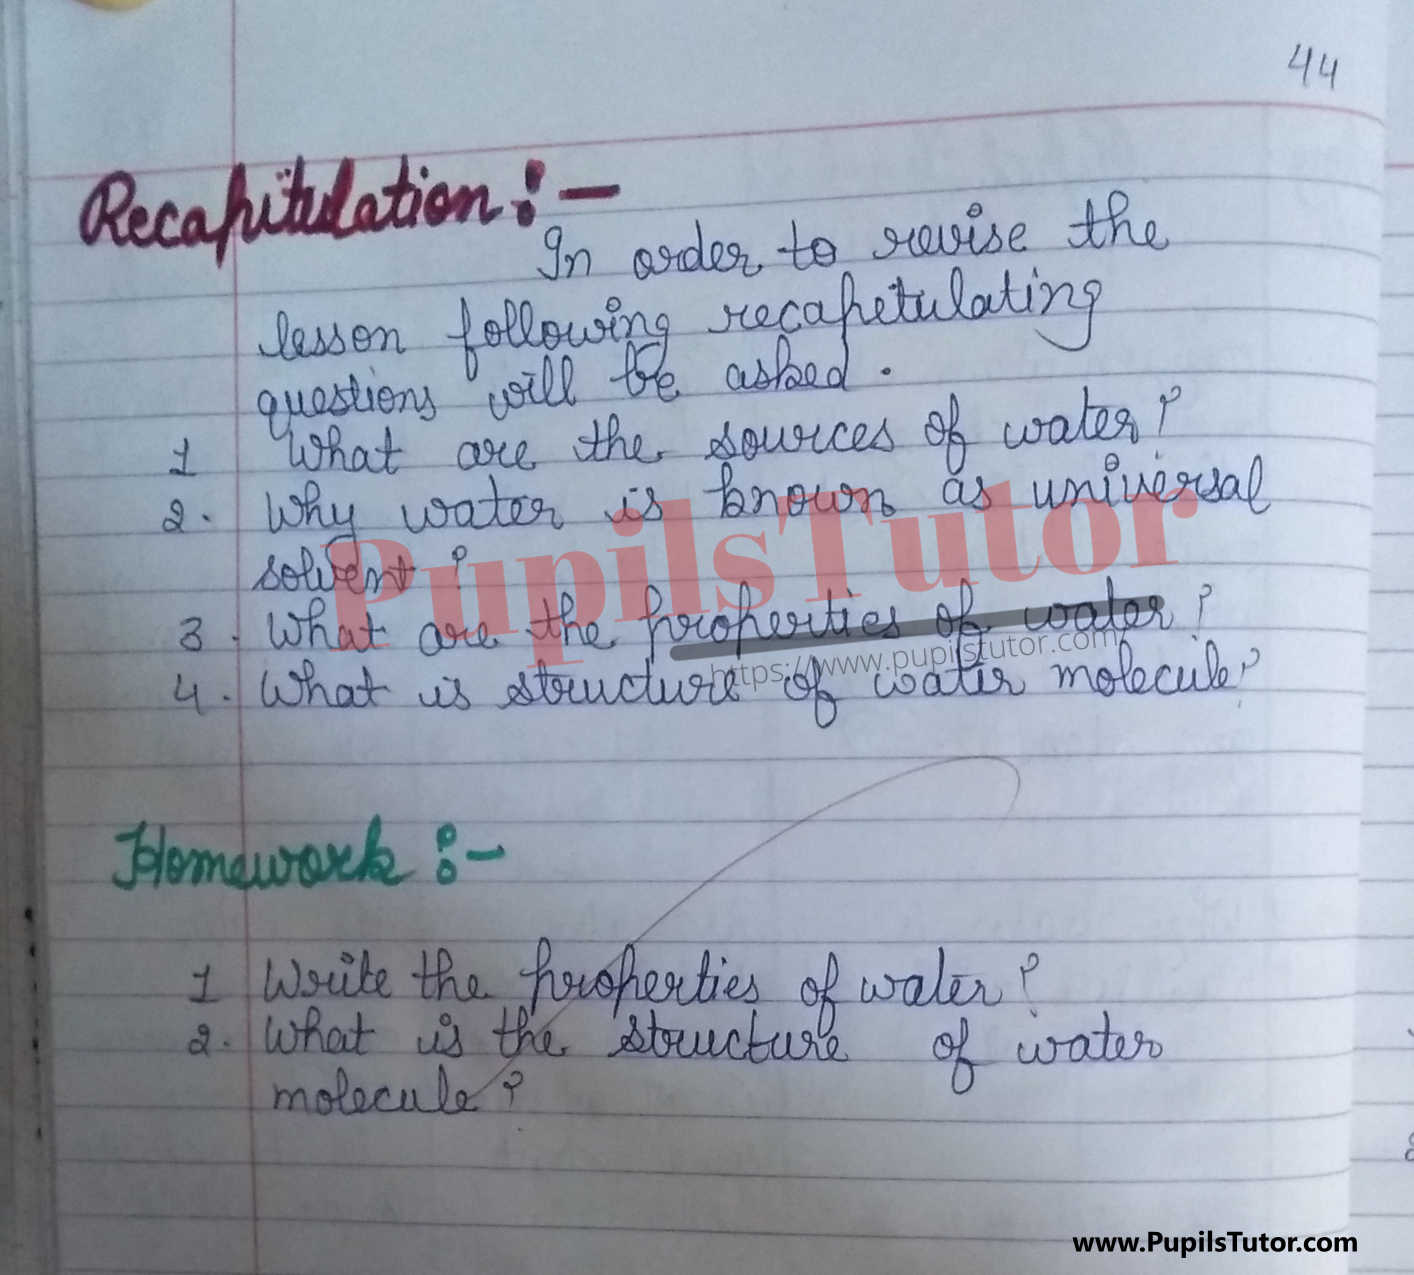 44
Recapitulation :-
In order to revise the
lesson following recapetulating
questions will be asked.
1 What are the sources of water?
2. Why water is known as universal
solvent?
PupilsTutor
3. What are the properties of water?
https://www.pupilstutor.com
4. What is structure of water molecule?
Homework :-
1 Write the properties of water?
2. What is the structure of water
molecule?
www.PupilsTutor.com